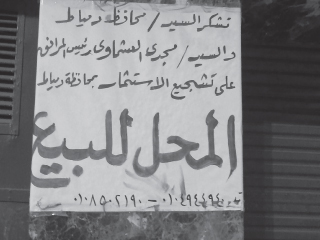 تشكر السيد / محافظ دمياط
والسيد / مجدى العشماوى رئيس المرافق
على تشجيع الاستثمار بمحافظة دمياط
المحل للبيع
٠١٠٨٥٠٢١٩٠ -